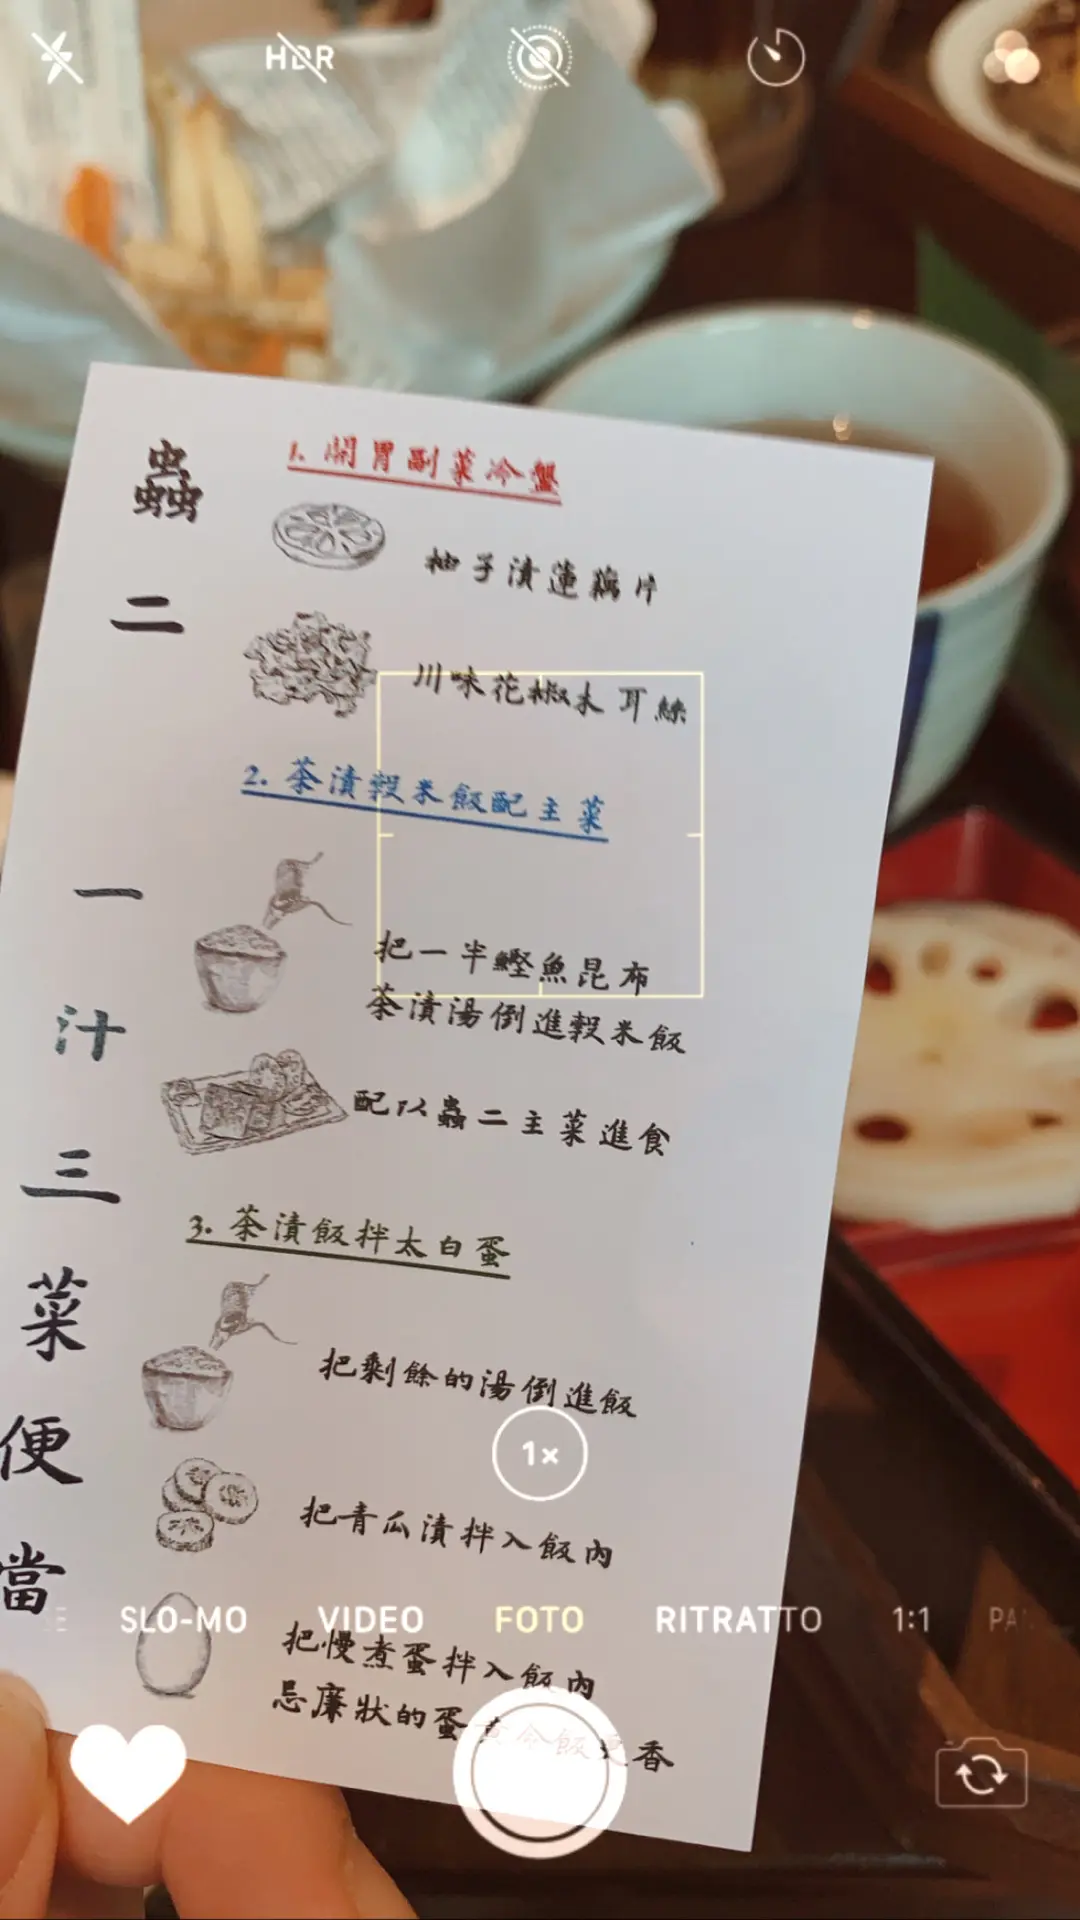 HDR
蟲二 一汁三菜便當
1. 開胃副菜冷盤
柚子漬蓮藕片
川味花椒木耳絲
2. 茶漬穀米飯配主菜
把一半鰹魚昆布
茶漬湯倒進穀米飯
配以蟲二主菜進食
3. 茶漬飯拌太白蛋
把剩餘的湯倒進飯
1×
把青瓜漬拌入飯內
SLO-MO VIDEO FOTO RITRATTO 1:1
把慢煮蛋拌入飯內
忌廉狀的蛋黃令飯更香